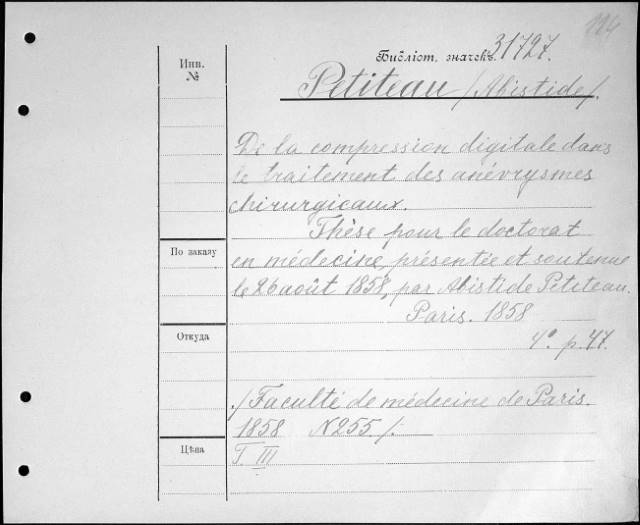 114
Инв. №
Библіот. значекъ. 31727.
Petiteau /Abistide/.
De la compression digitale dans
le traitement des anévrysmes
chirurgicaux.
Thèse pour le doctorat
По заказу
en médecine, présentée et soutenue
le 26 août 1858, par Abistide Petiteau.
Paris. 1858
Откуда
4° p. 47.
/Faculté de médecine de Paris.
1858 N 255./.
Цѣна
T. III